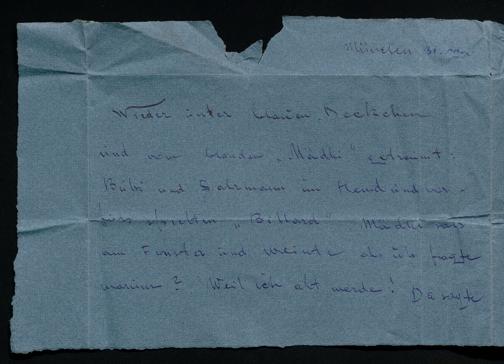 München 31.
Wieder unter blauen Deckchen
und von blonden „Mädki" geträumt:
Bubi und Salzmann im Hemd und
fuss spielten „Billard" Mädki sass
am Fenster und weinte als ich fragte
warum? Weil ich alt werde! Da sagte